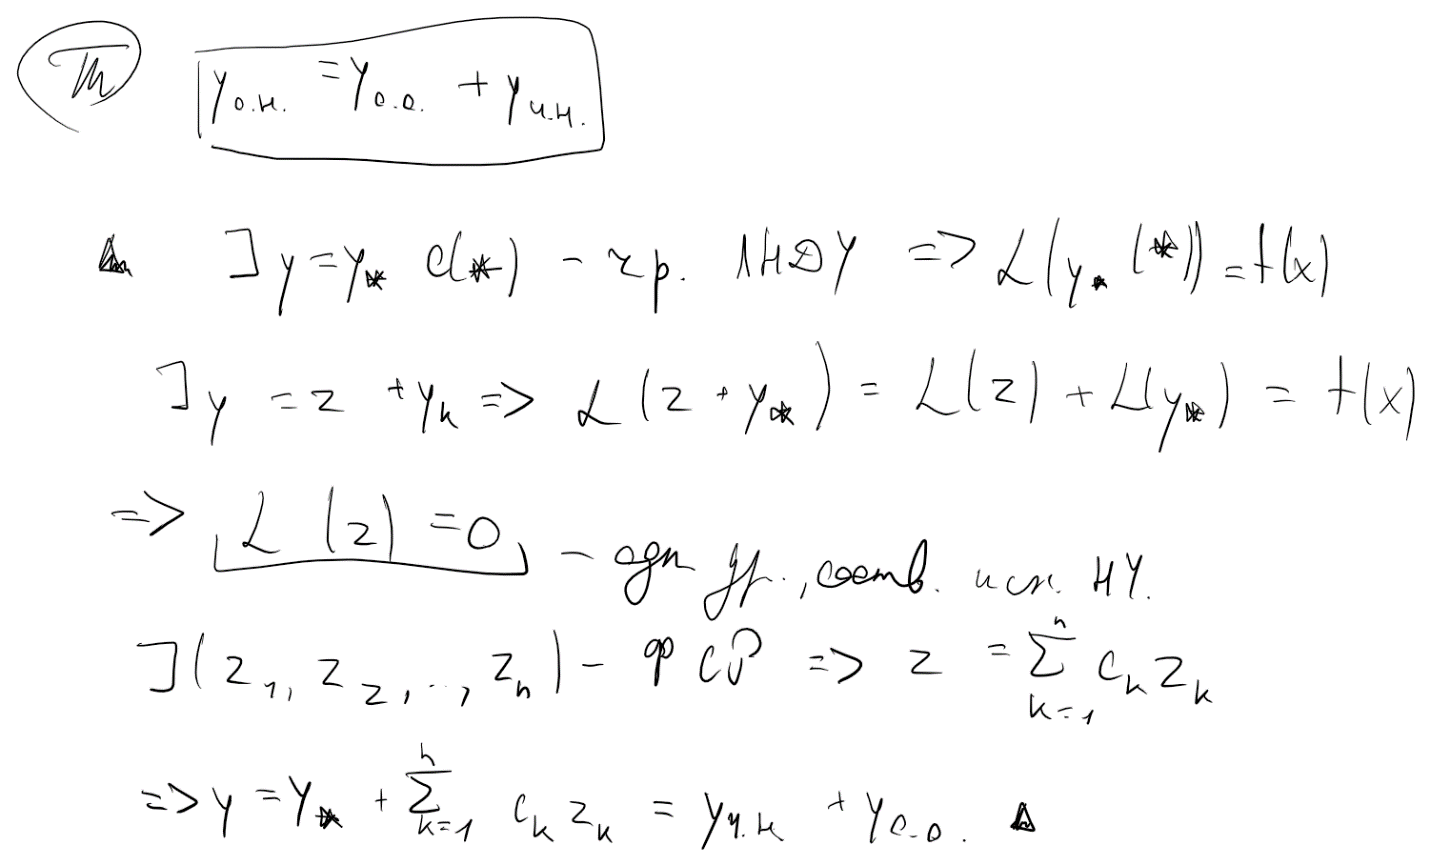 Th y о.н. = y о.о. + y ч.н.
] y = y* с(*) - ч.р. ЛНДУ => L(y*(*)) = f(x)
] y = z + yk => L(z + y*) = L(z) + L(y*) = f(x)
=> L(z) = 0 - одн ур., соотв. исх. НУ.
] (z1, z2, ..., zn) - ФСР => z = ∑ k=1 n ck zk
=> y = y* + ∑ k=1 n ck zk = y ч.н + y о.о.